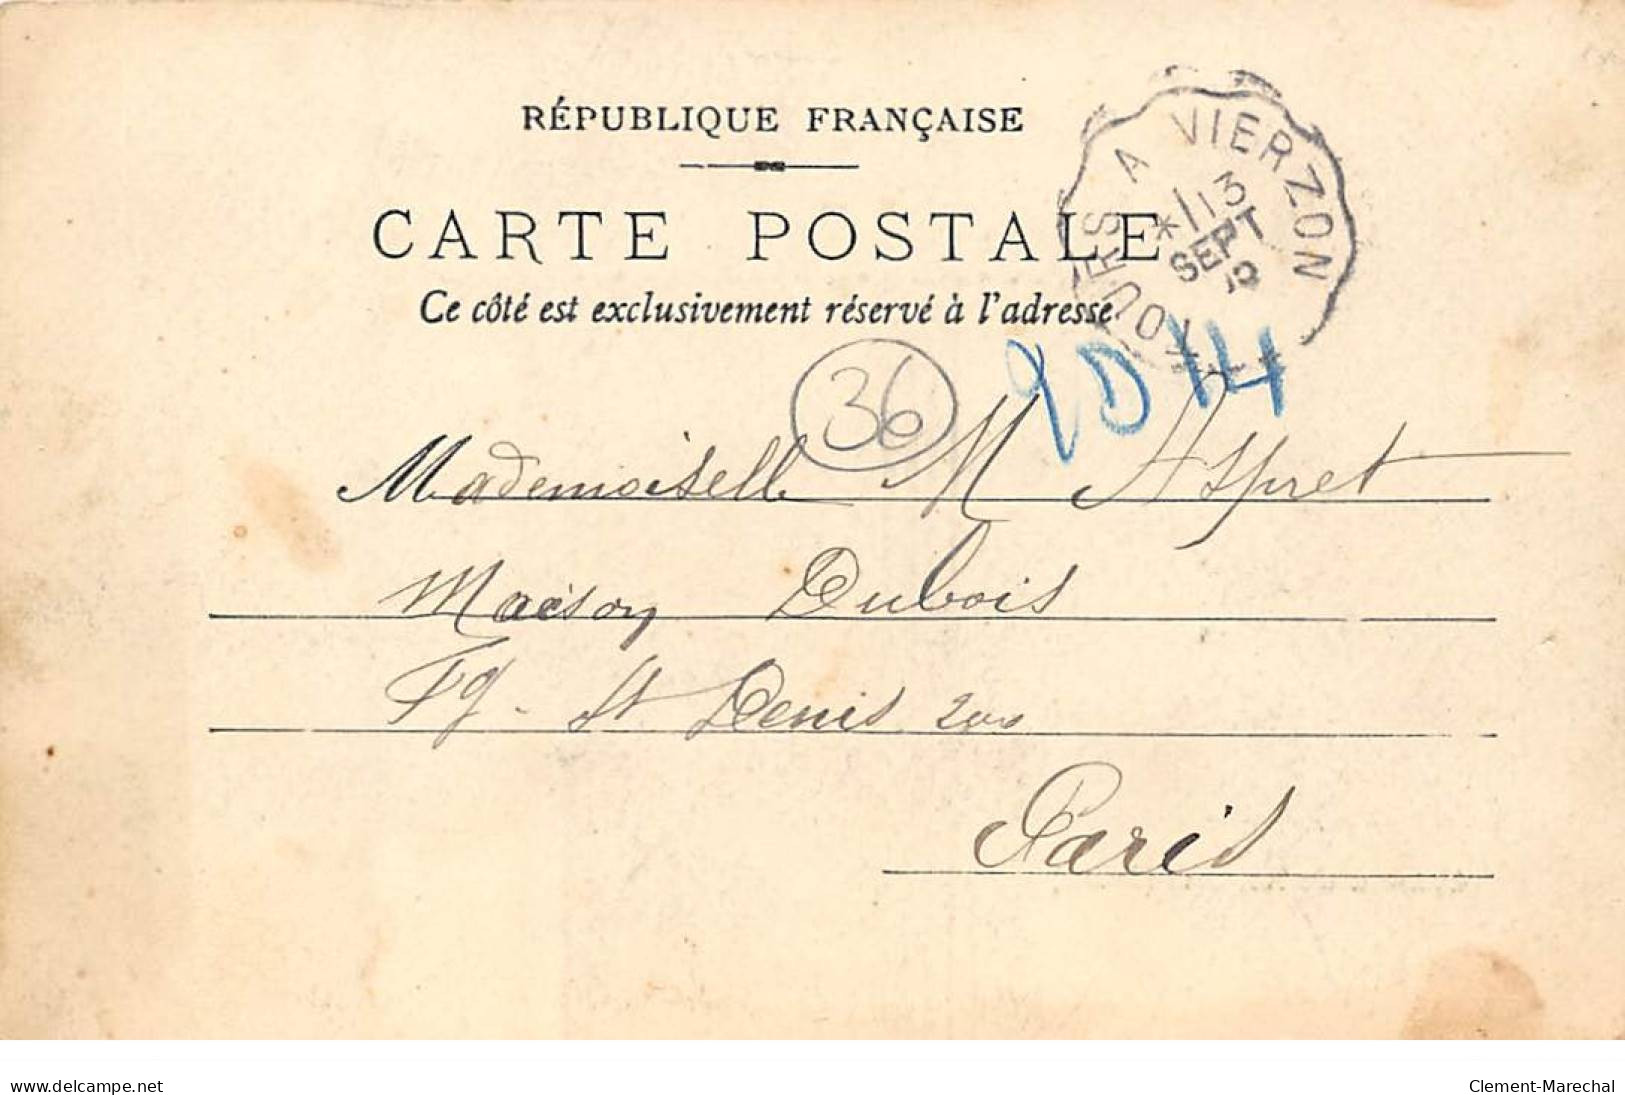 RÉPUBLIQUE FRANÇAISE
CARTE POSTALE
Ce côté est exclusivement réservé à l'adresse
TOURS A VIERZON
13
SEPT
36
Mademoiselle M Aspret
Maison Dubois
Fg - St Denis 200
Paris
www.delcampe.net
Clement-Marechal